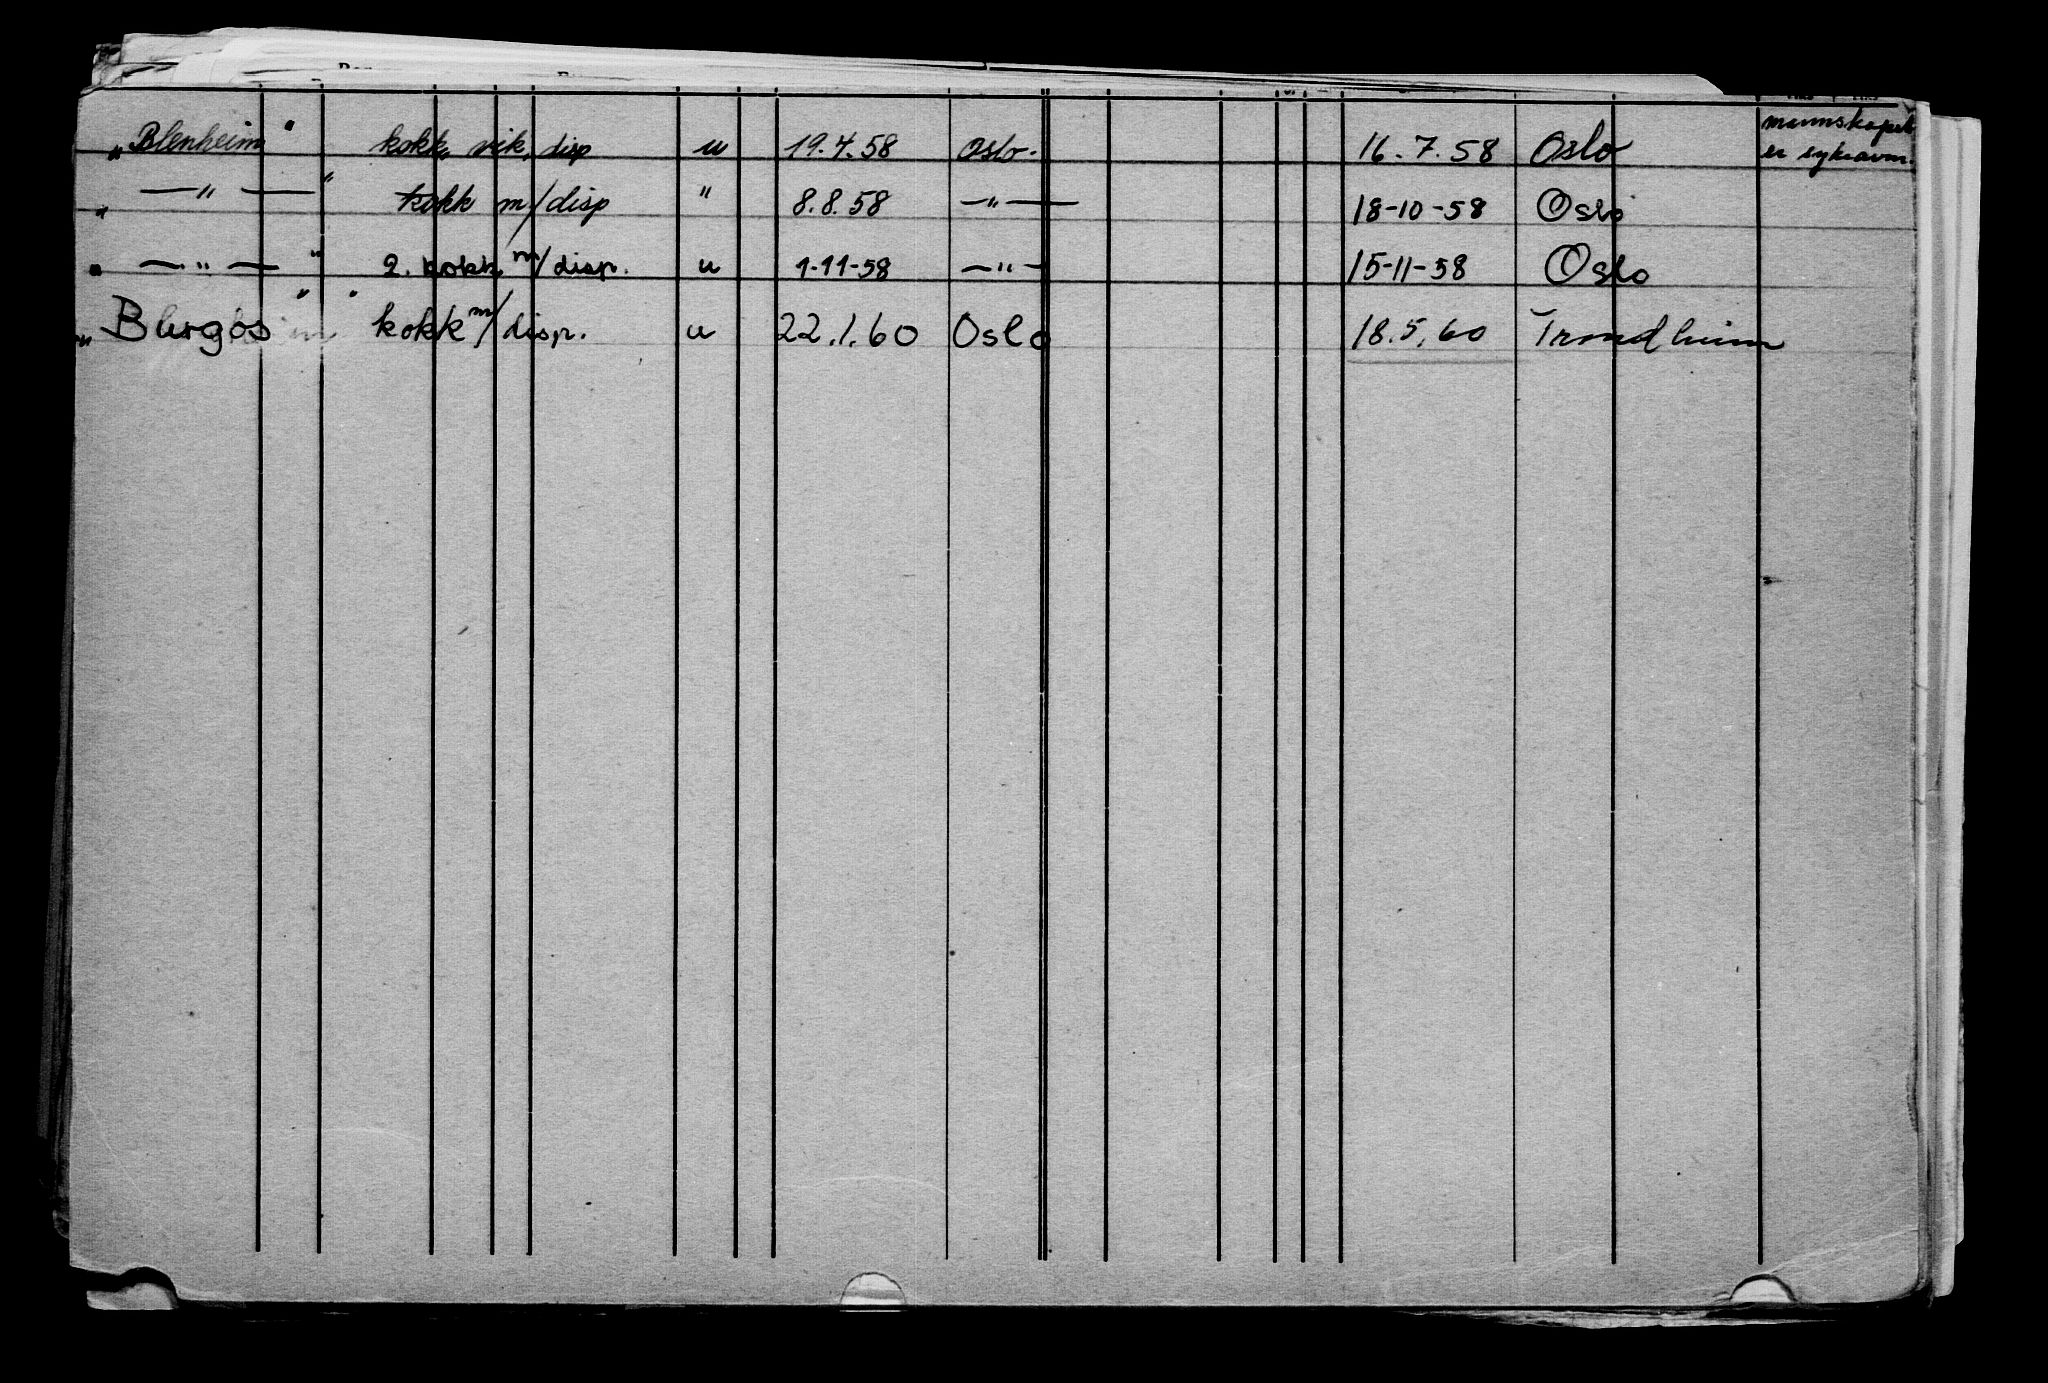 „Blenheim" kokk, vik, disp u 19.4.58 Oslo. 16.7.58 Oslo mannskapet
er sykeavm.
„ —"— " kokk m/disp " 8.8.58 —"— 18-10-58 Oslo
„ —"— " 2. kokk m/disp. u 1-11-58 —"— 15-11-58 Oslo
„Burgos" " kokk m/disp. u 22.1.60 Oslo 18.5.60 Trondheim